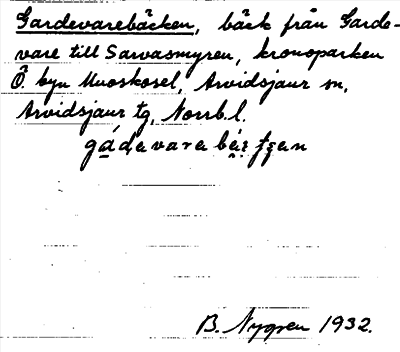 Gardevarebäcken, bäck från Garde-
vare till Sarvasmyren, kronoparken
Ö. byn Muoskosel, Arvidsjaur sn,
Arvidsjaur tg, Norrb. l.
B. Nygren 1932.